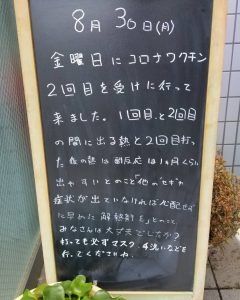 8月30日(月)
金曜日にコロナワクチン
2回目を受けに行って
来ました。1回目と2回目
の間に出る熱と2回目打っ
た後の熱は副反応は1ヵ月くらい
出やすいとのこと「他のせきや
症状が出ていなければ心配せず
に早めた解熱剤を」とのこと
みなさんは大丈夫でしたか?
打っても必ずマスク、手洗いなどを
行ってくださいね。